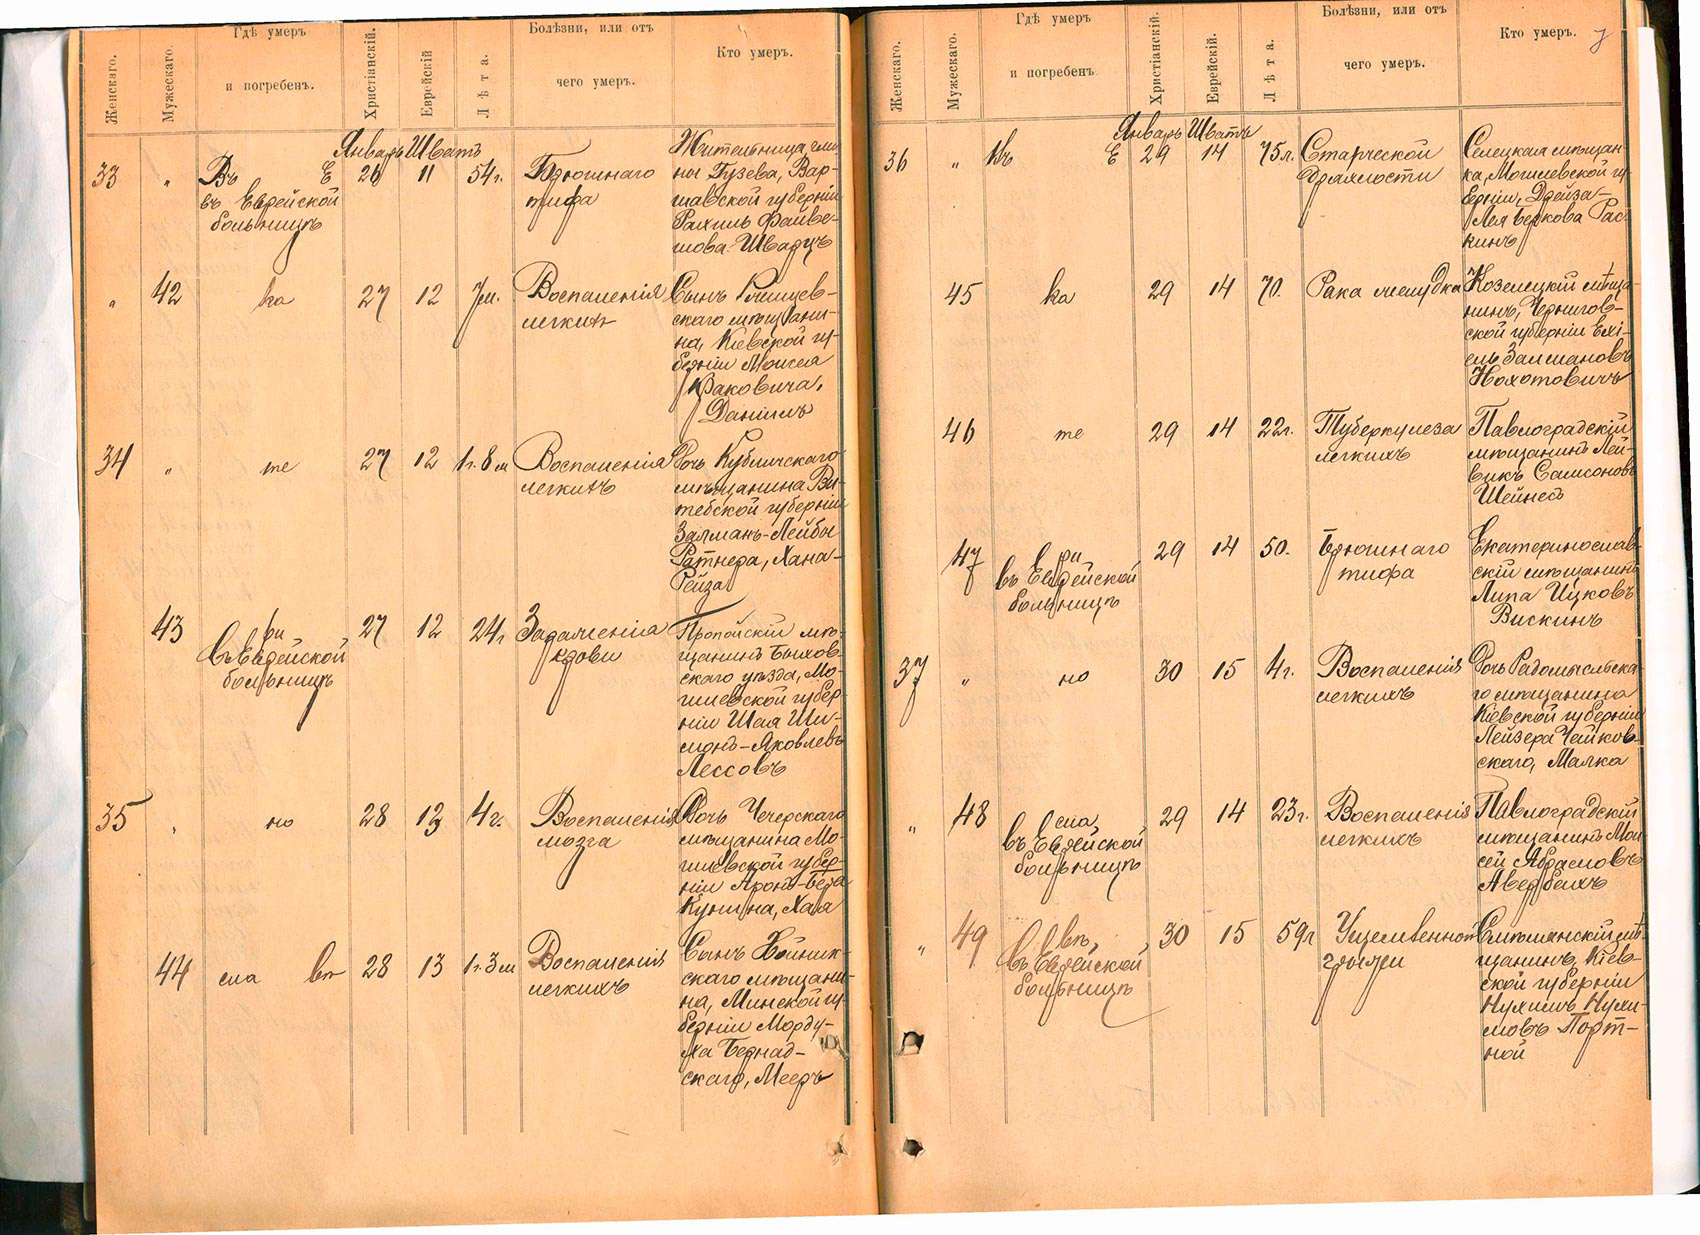 Женскаго.
Мужескаго.
Гдѣ умеръ
и погребенъ.
Христіанскій.
Еврейскій
Лѣта.
Болѣзни, или отъ
чего умеръ.
Кто умеръ.
Январь Шватъ
33 " Въ Е 26 11 54 г. Брюшнаго
тифа
въ Еврейской
больницѣ
Жительница гми
ны Гузева, Вар-
шавской губерніи
Рахиль Файве-
шова Шварцъ
" 42 ка 27 12 7 м. Воспаленія
легкихъ
Сынъ
скаго мѣщани-
на, Кіевской гу-
берніи Моисея
Раковича,
Даніилъ
34 " те 27 12 1 г. 8 м Воспаленія
легкихъ
Дочь Кубличскаго
мѣщанина Ви-
тебской губерніи
Залманъ-Лейбы
Ратнера, Хана-
Рейза
43 ри 27 12 24 г Зараженія
крови
въ Еврейской
больницѣ
Пропойскій мѣ-
щанинъ Быхов-
скаго уѣзда, Мо-
гилевской губер-
ніи Шая Ши-
монъ-Яковлевъ
Лессовъ
35 " но 28 13 4 г. Воспаленія
мозга
Дочь Чечерскаго
мѣщанина Мо-
гилевской губер-
ніи Аронъ-Бера
Кунина, Хая
44 сла вп 28 13 1 г. 3 м Воспаленія
легкихъ
Сынъ Хойник-
скаго мѣщани-
на, Минской гу-
берніи Морду-
ха Бернад-
скаго, Мееръ
Женскаго.
Мужескаго.
Гдѣ умеръ
и погребенъ
Христіанскій.
Еврейскій.
Лѣта.
Болѣзни, или отъ
чего умеръ.
Кто умеръ.
7
Январь Шватъ
36 " Въ Е 29 14 75 л. Старческой
дряхлости
Селецкая мѣщан-
ка, Могилевской гу-
берніи, Дрейза-
Лея Беркова Рас
кинъ
45 ка 29 14 70. Рака желудка
Козелецкій мѣща-
нинъ, Чернигов-
ской губерніи Ехі-
ель Залмановъ
Нохотовичъ
46 те 29 14 22 г. Туберкулеза
легкихъ
Павлоградскій
мѣщанинъ Лей-
викъ Самсоновъ
Шейнесъ
47 ри 29 14 50. Брюшнаго
тифа
въ Еврейской
больницѣ
Екатеринослав-
скій мѣщанинъ
Липа Ицковъ
Вискинъ
37 " но 30 15 4 г. Воспаленія
легкихъ
Дочь Радомысльска-
го мѣщанина
Кіевской губерніи
Лейзера Чайков-
скаго, Малка
" 48 сла 29 14 23 г. Воспаленія
легкихъ
въ Еврейской
больницѣ
Павлоградскій
мѣщанинъ Мои
сей Абрамовъ
Авербухъ
" 49 вп, 30 15 59 л Ущемленной
грыжи
въ Еврейской
больницѣ
Смѣлянскій мѣ-
щанинъ, Кіев-
ской губерніи
Нухимъ Нухи-
мовъ Порт-
ной